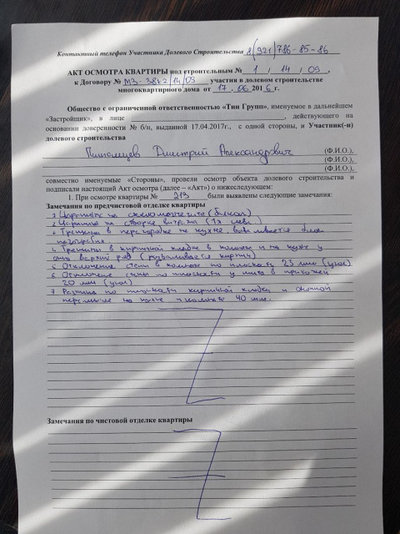 Контактный телефон Участника Долевого Строительства 8(921)786-85-86
АКТ ОСМОТРА КВАРТИРЫ под строительным № 1/14/09,
к Договору № участия в долевом строительстве
многоквартирного дома от 17.06.2016 г.
Общество с ограниченной ответственностью «Тин Групп», именуемое в дальнейшем
«Застройщик», в лице действующего на
основании доверенности № б/н, выданной 17.04.2017г., с одной стороны, и Участник(-и)
долевого строительства
Дмитрий Александрович (Ф.И.О.),
(Ф.И.О.),
(Ф.И.О.),
совместно именуемые «Стороны», провели осмотр объекта долевого строительства и
подписали настоящий Акт осмотра (далее – «Акт») о нижеследующем:
1. При осмотре квартиры № 213 были выявлены следующие замечания:
Замечания по предчистовой отделке квартиры
1 Царапины на стеклопакете (балкон)
2 Царапина на створке
3 Трещины в перегородке на кухне,
4 Трещины в кирпичной кладке в комнате и на кухне у
окна верхний ряд (кирпич)
5 Отклонение стены в комнате по плоскости 25 мм (угол)
6 Отклонение стены по плоскости у входа в прихожей
20 мм (угол)
7 Разница по плоскости кирпичной кладки и оконной
перемычке на кухне 40 мм.
Замечания по чистовой отделке квартиры